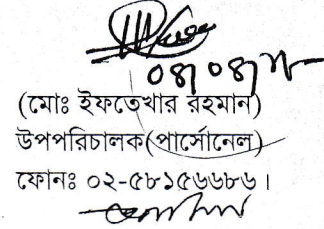 (মোঃ ইফতেখার রহমান)
উপপরিচালক(পার্সোনেল)
ফোনঃ ০২-৫৮১৫৬৬৮৬।